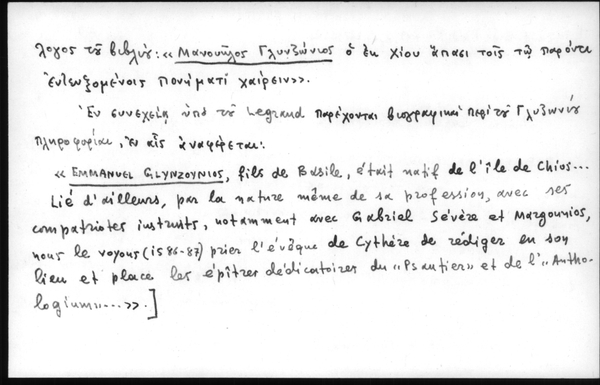 λογος τοῦ βιβλίου: «Μανουῆλος Γλυνζώνιος ὁ ἐκ Χίου ἅπασι τοῖς τῷ παρόντι
ἐντευξομένοις πονήματι χαίρειν».
Ἐν συνεχείᾳ ὑπὸ τοῦ Legrand παρέχονται βιογραφικαὶ περὶ τοῦ Γλυζωνίου
πληροφορίαι, ἐν αἷς ἀναφέρεται:
« EMMANUEL GLYNZOYNIOS, fils de Basile, était natif de l'île de Chios...
Lié d'ailleurs, par la nature même de sa profession, avec ses
compatriotes instruits, notamment avec Gabriel Sévère et Margounios,
nous le voyons (1586-87) prier l'évêque de Cythère de rédiger en son
lieu et place les épîtres dédicatoires du «Psautier» et de l'«Antho-
logium»...».]